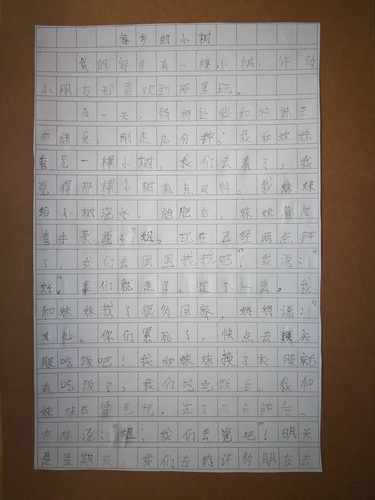 家乡的小树
我的家乡有一棵小树，许多
小朋友别喜欢到那里玩。
有一天，妈妈让我和妹妹去
我和妹妹
看见一棵小树，我们去看了，我
觉得那棵小树有点可怜。我妹妹
给小树浇水，
看手表说："姐，现在已经两点钟
了！我们去田里找找吧！"我说："
好。"我们就走了，过了一会，我
和妹妹找了很多回家，妈妈说："
女儿，你们累死了，快点去换衣
服吃饭吧！我和妹妹换了衣服就
去吃饭了，我们吃完饭后，我和
妹妹去过了八分钟后，
妹妹说："姐，我们去吧"！明天
是星期天，我们去找许多朋友去